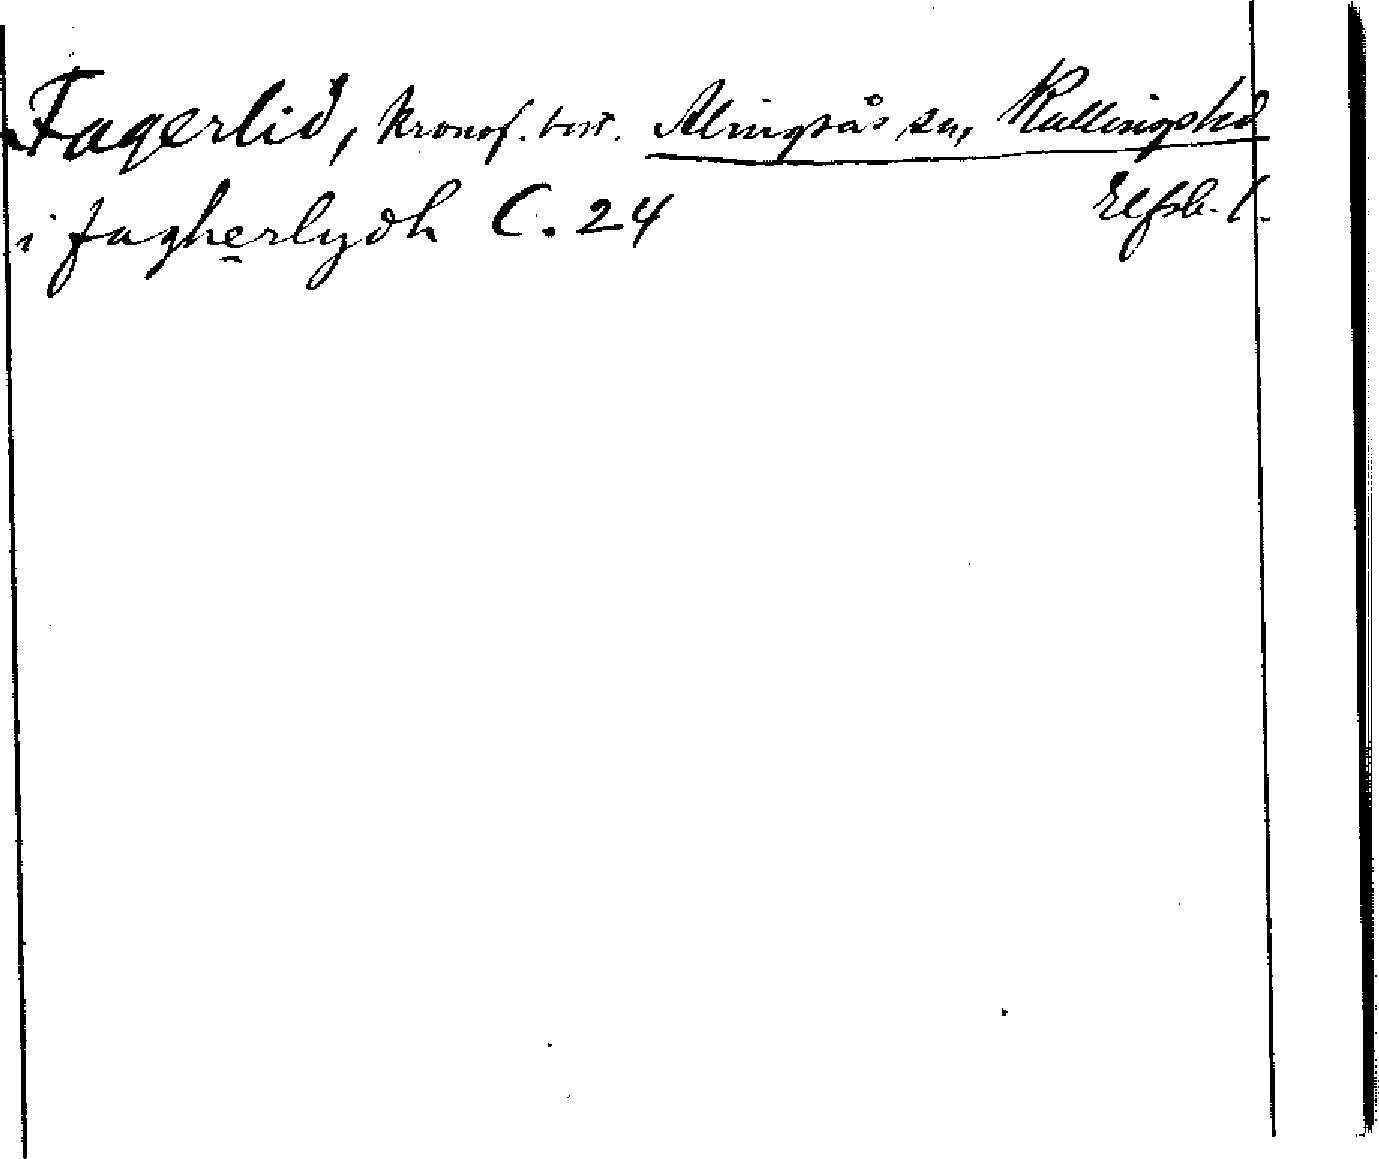 Fagerlid, kronof. tort. Alingsås sn, Kullingshd
Elfsb. l.
i fagherlydh C. 24